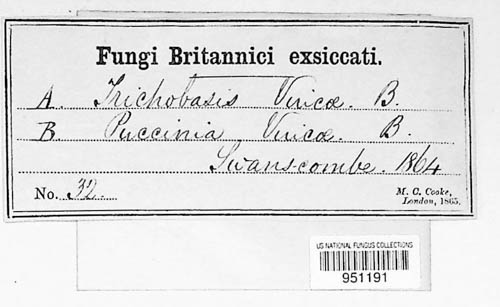 Fungi Britannici exsiccati.
A. Trichobasis Vincæ. B.
B Puccinia Vincæ. B.
Swanscombe. 1864
No. 32.
M. C. Cooke,
London, 1865.
US NATIONAL FUNGUS COLLECTIONS
951191